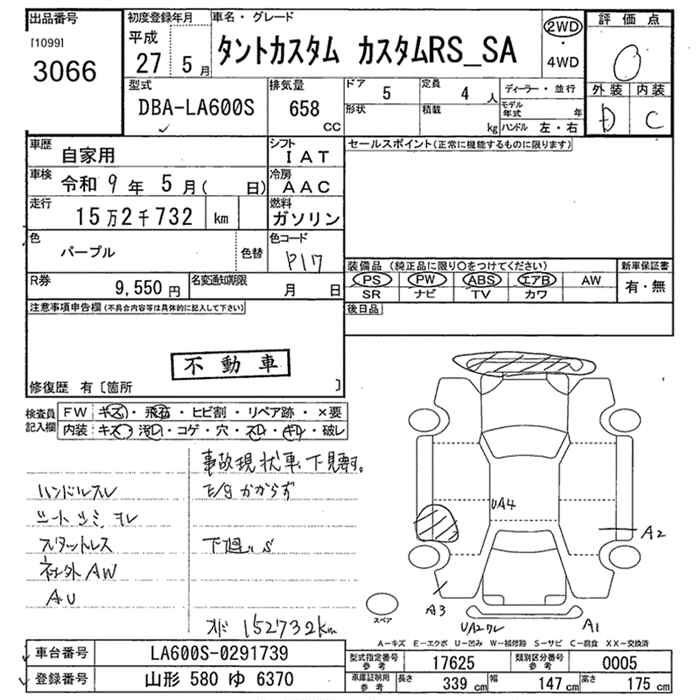 出品番号 初度登録年月 車名・グレード 2WD 評価点
[1099] 平成 タントカスタム カスタムRS_SA ・ 0
3066 27 5月 4WD 外装 内装
型式 排気量 ドア 5 定員 4人 ディーラー・並行 D C
DBA-LA600S 658 cc 形状 積載 kg モデル年式 年 ハンドル 左・右
車歴 自家用 シフト IAT セールスポイント(正常に機能するものに限ります)
車検 令和9年5月( 日) 冷房 AAC
走行 15万2千732 km 燃料 ガソリン
色 パープル 色替 色コード P17
装備品(純正品に限り○をつけてください) 新車保証書
R券 9,550円 名変通知期限 月 日 PS PW ABS エアB AW 有・無
SR ナビ TV カワ
注意事項申告欄(不具合内容等は具体的に記入して下さい) 後日品
不動車
修復歴 有〔箇所 〕
検査員記入欄 FW キズ・飛石・ヒビ割・リペア跡・×要
内装:キズ・汚レ・コゲ・穴・スレ・キレ・破レ
事故現状車、下見要す。
ハンドルスレ E/gかからず
シートシミ、ヨレ UA4
スタットレス 下廻りS A2
社外AW
AU A3
オド152732km スペア UA2ワレ A1
A-キズ E-エクボ U-凹み W-補修跡 S-サビ C-腐食 XX-交換済
車台番号 LA600S-0291739 型式指定番号 参考 17625 類別区分番号 参考 0005
登録番号 山形 580 ゆ 6370 車庫証明用 参考 長さ 339cm 幅 147cm 高さ 175cm